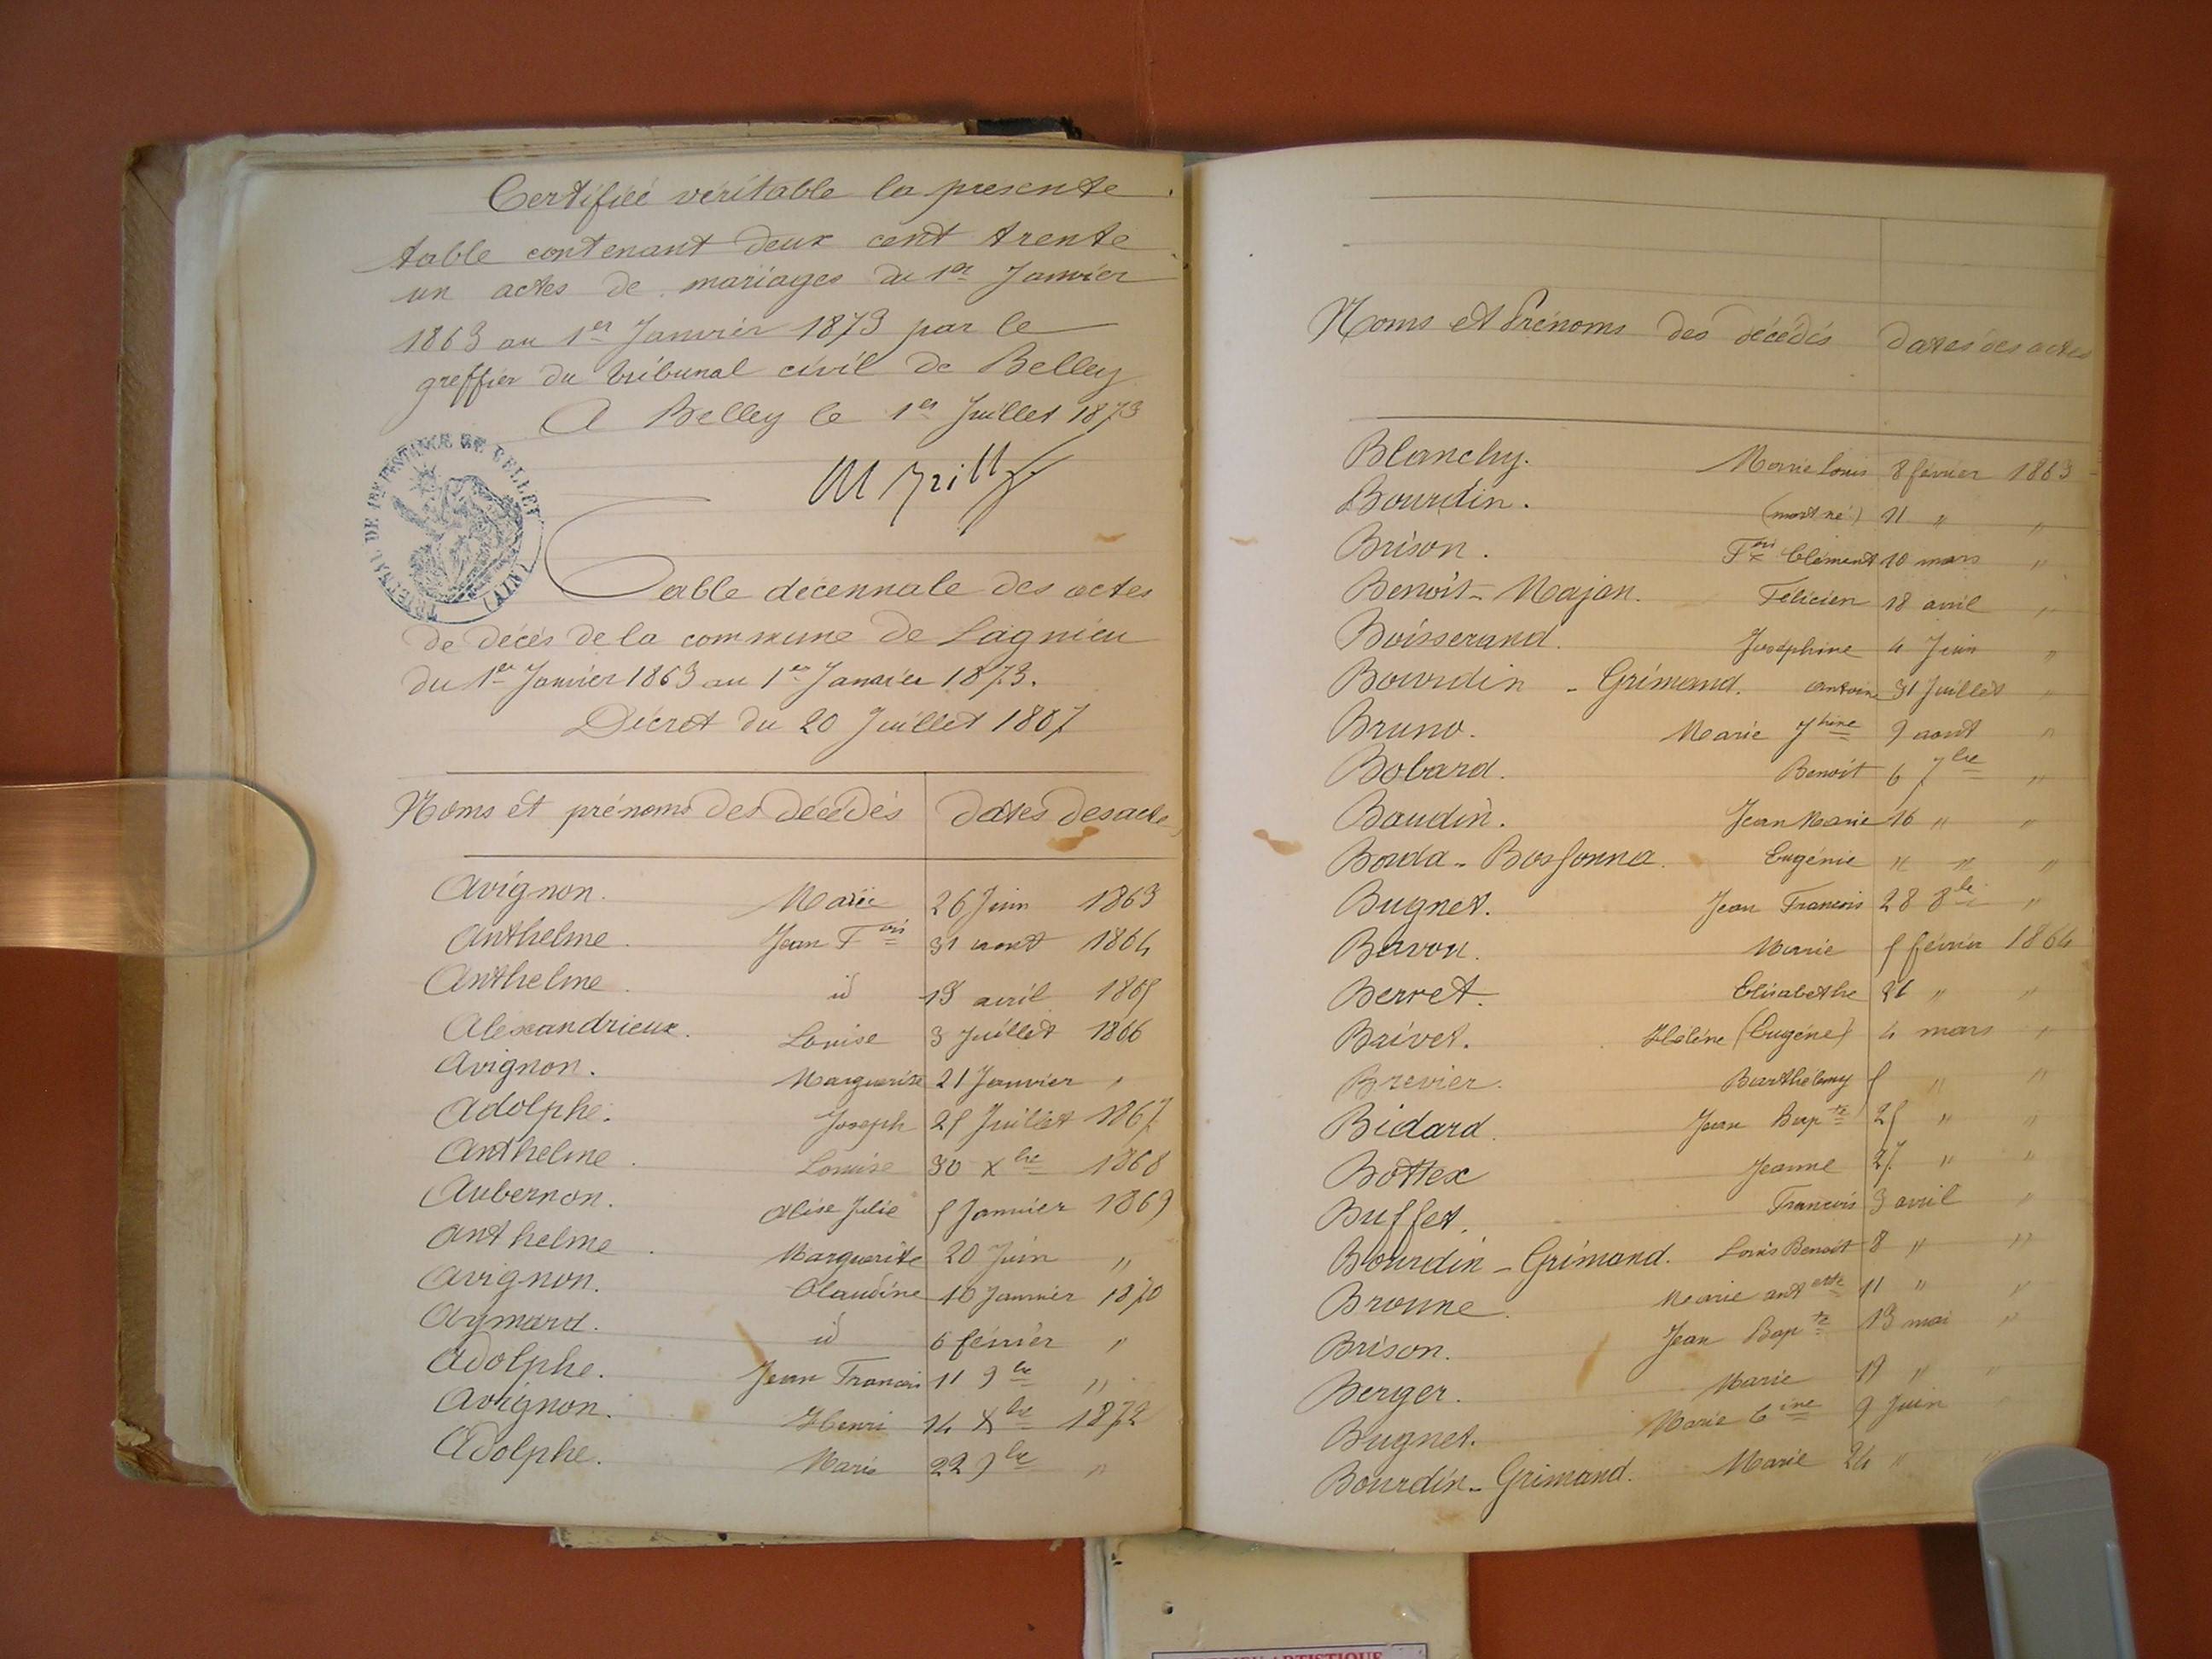 Certifiée véritable la presente
table contenant deux cent trente
un actes de mariages du 1er Janvier
1863 au 1er Janvier 1873 par le
greffier du tribunal civil de Belley
A Belley le 1er Juillet 1873
TRIBUNAL DE 1RE INSTANCE DE BELLEY (AIN)
Table décennale des actes
de décès de la commune de Lagnieu
du 1er Janvier 1863 au 1er Janvier 1873.
Décret du 20 Juillet 1807
Noms et prénoms des décédés dates des actes
Avignon. Marie 26 Juin 1863
Anthelme. Jean Fois 31 aout 1864
Anthelme. id 19 avril 1865
Alexandrieux. Louise 3 Juillet 1866
Avignon. Marguerite 21 Janvier "
Adolphe. Joseph 25 Juillet 1867
Anthelme. Louise 30 xbre 1868
Aubernon. Alise Julie 5 Janvier 1869
Anthelme. Marguerite 20 Juin "
Avignon. Claudine 10 Janvier 1870
Aymard. id 6 février "
Adolphe. Jean Francois 11 9bre "
Avignon. Henri 14 8bre 1872
Adolphe. Marie 22 9bre "
Noms et Prénoms des décédés dates des actes
Blanchy. Marie Louis 8 février 1863
Bourdin. (mort né) 11 " "
Brison. Fois Clément 10 mars "
Benoit-Majan. Félicien 18 avril "
Boisserand. Joséphine 4 Juin "
Bourdin-Grimand. Antoine 31 Juillet "
Bruno. Marie Jhine 9 aout "
Bobard. Benoit 6 7bre "
Baudin. Jean Marie 16 " "
Borda-Bossonna. Eugénie " " "
Bugnet. Jean Francois 28 8bre "
Bavou. Marie 5 février 1864
Berret. Elisabethe 26 " "
Baivet. Hélène (Eugéne) 4 mars "
Brevier. Barthélemy 5 " "
Bidard. Jean Bapte 25 " "
Bottex Jeanne 27 " "
Buffet. Francois 3 avril "
Bourdin-Grimand. Louis Benoit 8 " "
Bronne. Marie antette 11 " "
Brison. Jean Bapte 13 mai "
Berger. Marie 17 " "
Bugnet. Marie Cine 9 Juin "
Bourdin-Grimand. Marie 24 " "